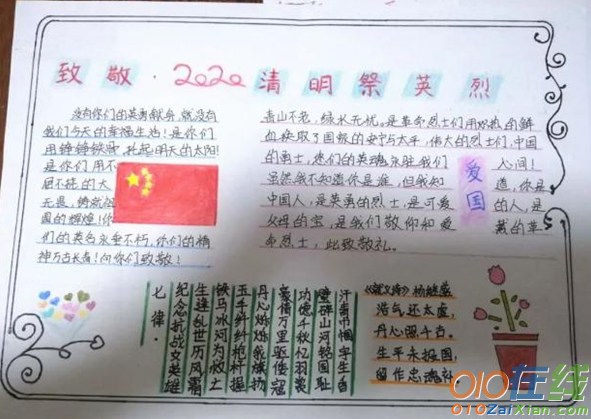 致敬·2020清明祭英烈
没有你们的英勇献身,就没有
我们今天的幸福生活!是你们
用铮铮铁骨,托起明天的太阳!
是你们用不
屈不挠的大
无畏,铸就祖
国的辉煌!你
们的英名永垂不朽,你们的精
神万古长青!向你们致敬!
青山不老,绿水无忧。是革命烈士们用炽热的鲜
血换取了国家的安宁与太平,伟大的烈士们,中国
的勇士,您们的英魂永驻我们
人间!
虽然我不知道你是谁,但我知
道,你是
中国人,是英勇的烈士,是可爱
的人,是
父母的宝,是我们敬仰和爱
戴的革
命烈士,此致敬礼。
爱国
七律·
纪念抗战女英雄
生逢乱世历风霜
铁马冰河为救亡
玉手纤纤枪杆握
丹心
豪情万里驱倭寇
功德千秋忆羽裳
山河铭国耻
汗青巾帼字生香
《就义诗》杨继盛
浩气还太虚,
丹心照千古。
生平未报国,
留作忠魂补。
010在线
010ZaiXian.com